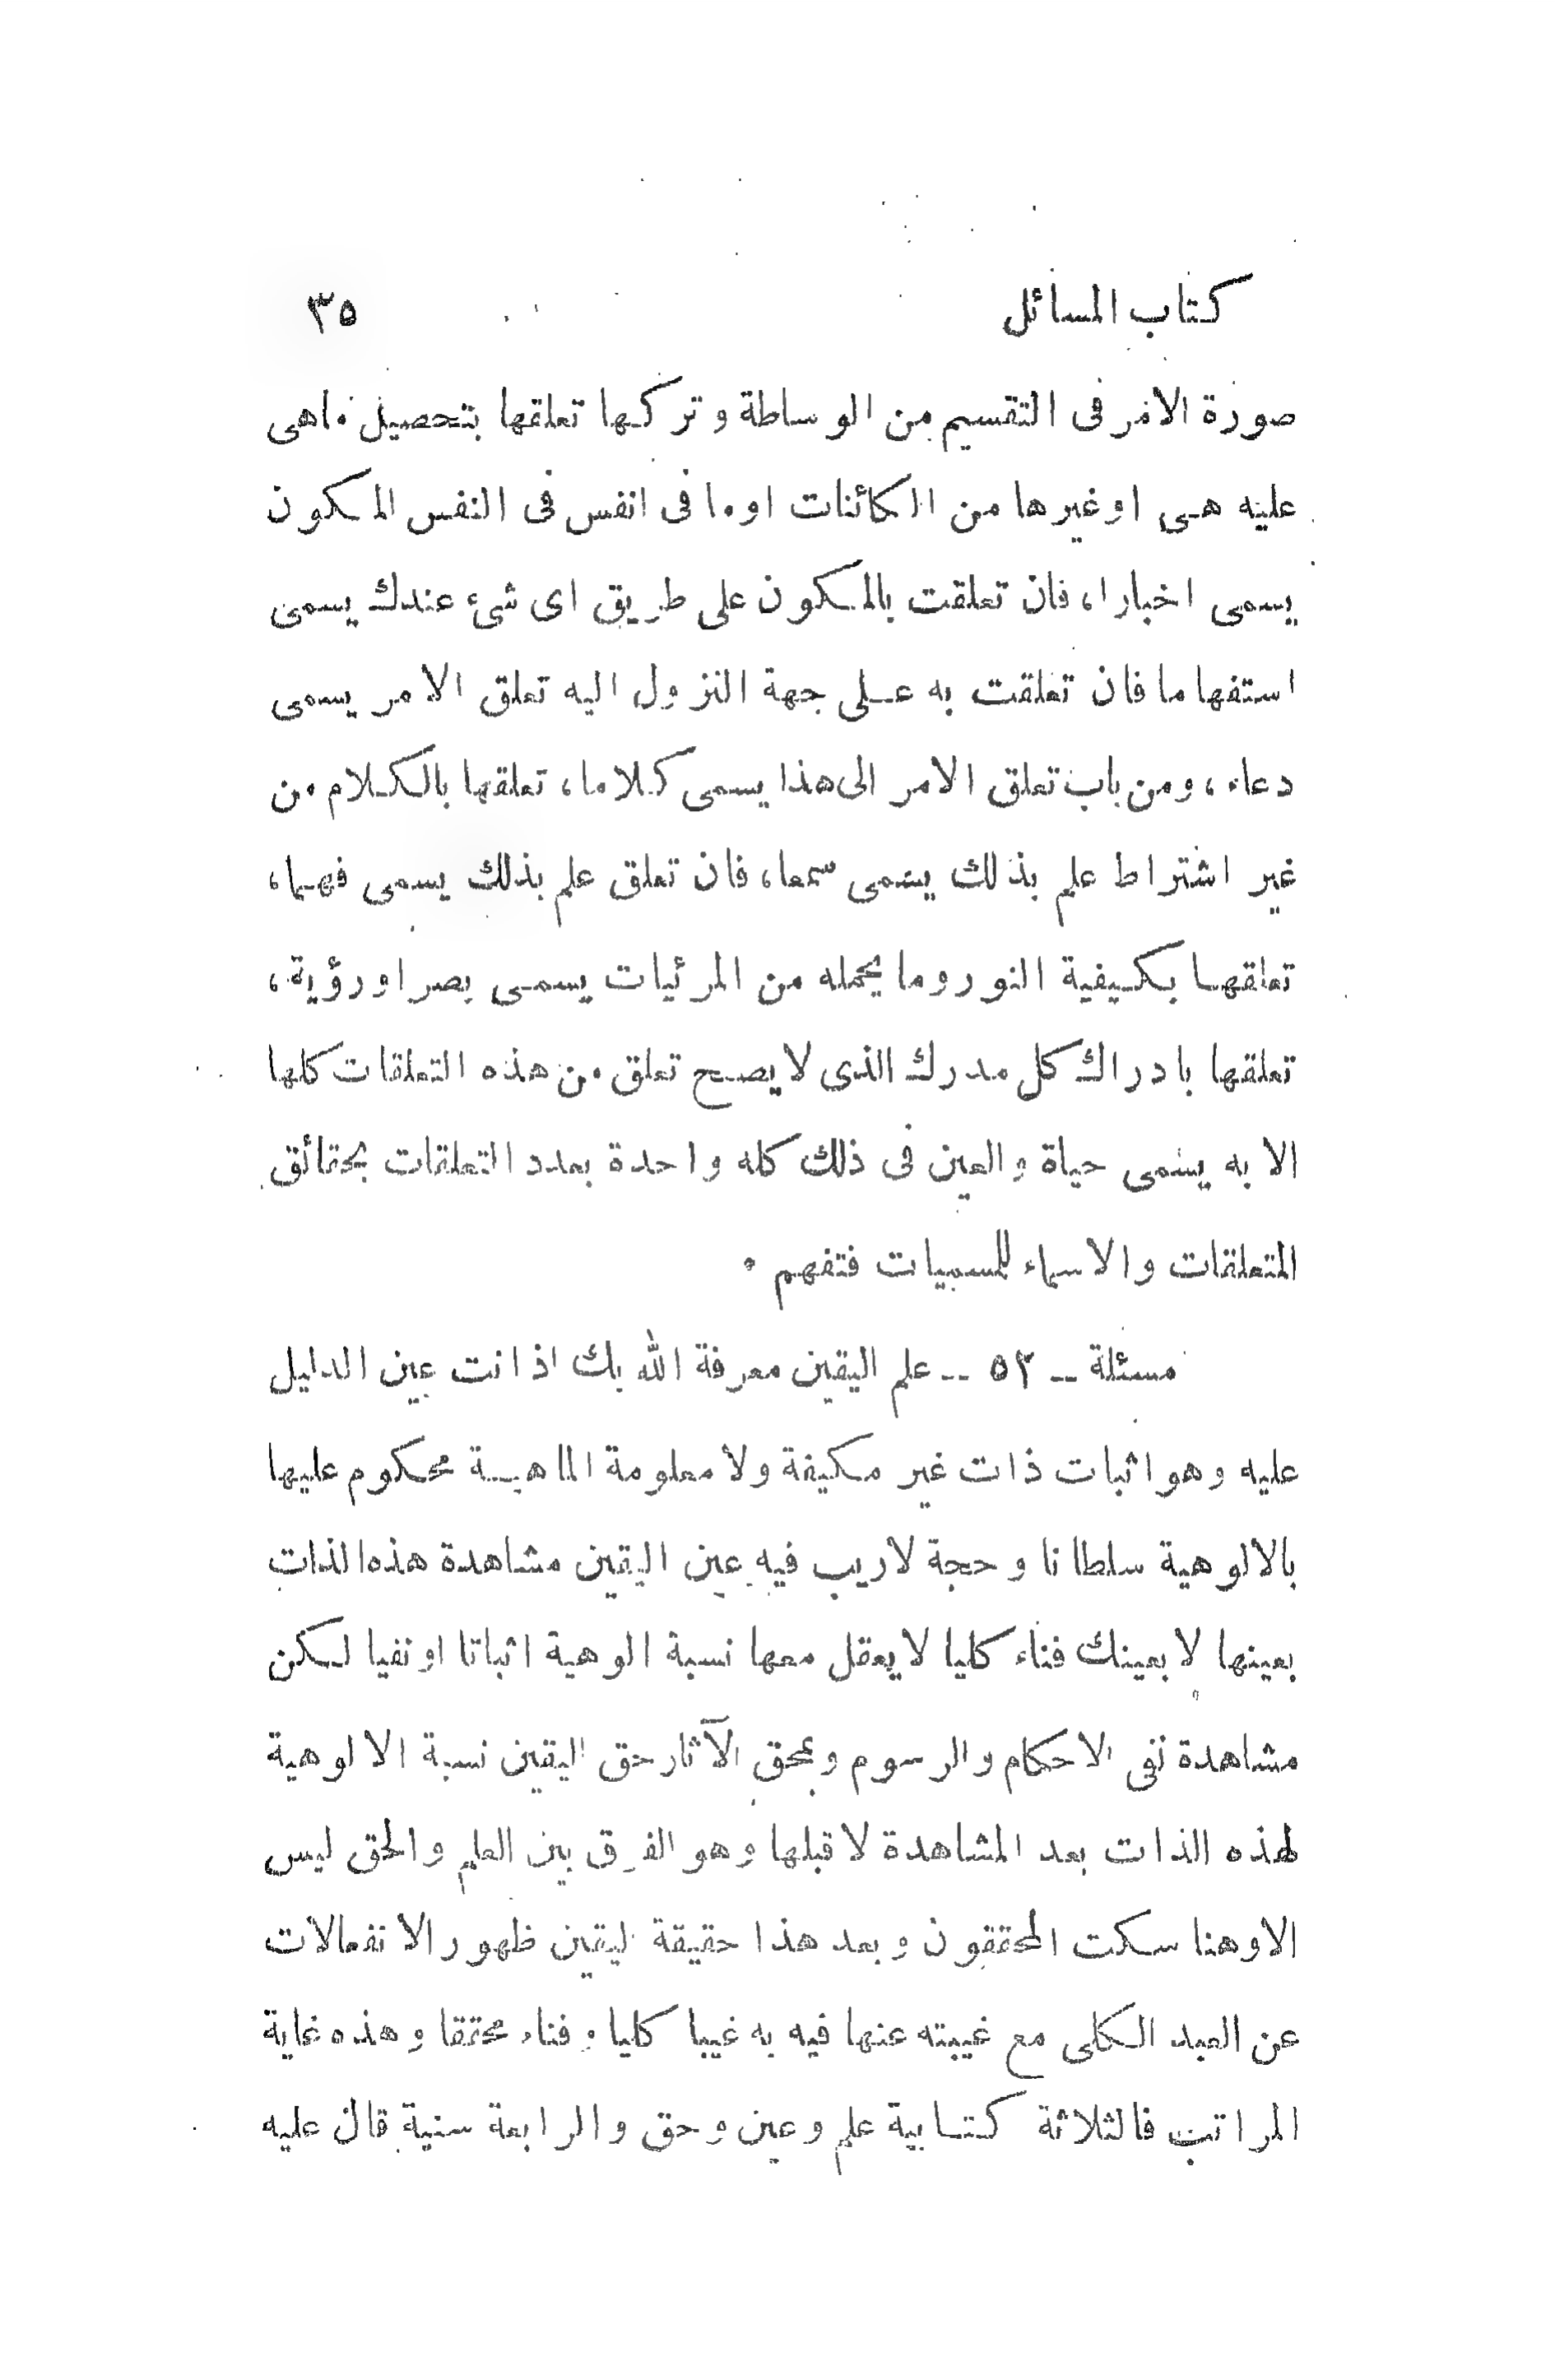 كتاب المسائل ٣٥
صورة الامر فى التقسيم من الوساطة وتركها تعلقها بتحصيل ماهى
عليه هى اوغيرها من الكائنات اوما فى انفس فى النفس المكون
يسمى اخبارا، فان تعلقت بالمكون على طريق اى شئ عندك يسمى
استفهاما فان تعلقت به على جهة النزول اليه تعلق الامر يسمى
دعاء، ومن باب تعلق الامر الى هذا يسمى كلاما، تعلقها بالكلام من
غير اشتراط علم بذلك يسمى سمعا، فان تعلق علم بذلك يسمى فهما،
تعلقها بكيفية النور وما يحمله من المرئيات يسمى بصرا ورؤية،
تعلقها بادراك كل مدرك الذى لا يصح تعلق من هذه التعلقات كلها
الا به يسمى حياة والعين فى ذلك كله واحدة بعدد التعلقات بحقائق
المتعلقات والاسماء للمسميات فتفهم .
مسئلة -- ٥٢ -- علم اليقين معرفة الله بك اذ انت عين الدليل
عليه وهو اثبات ذات غير مكيفة ولا معلومة الماهية محكوم عليها
بالالوهية سلطانا وحجة لاريب فيه عين اليقين مشاهدة هذه الذات
بعينها لا بعينك فناء كليا لا يعقل معها نسبة الوهية اثباتا اونفيا لكن
مشاهدة نفى الاحكام والرسوم وبمحق الآثار حق اليقين نسبة الالوهية
لهذه الذات بعد المشاهدة لا قبلها وهو الفرق بين العلم والحق ليس
الاوهنا سكت المحققون وبعد هذا حقيقة اليقين ظهور الانفعالات
عن العبد الكلى مع غيبته عنها فيه به غيبا كليا وفناء محققا وهذه غاية
المراتب فالثلاثة كتابية علم وعين وحق والرابعة سنية قال عليه